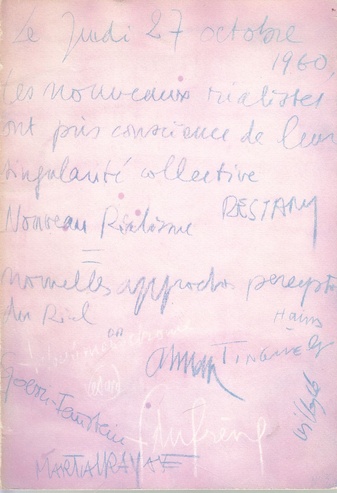 Le Jeudi 27 octobre
1960,
Les nouveaux réalistes
ont pris conscience de leur
singularité collective
RESTANY
Nouveau Réalisme
=
nouvelles approches percept
du Réel
Hains
Arman TINGUELY
Villeglé
Spoerri-Feinstein
Dufrêne
MARTIALRAYSSE